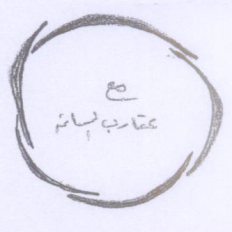 مع
عقارب الساعة